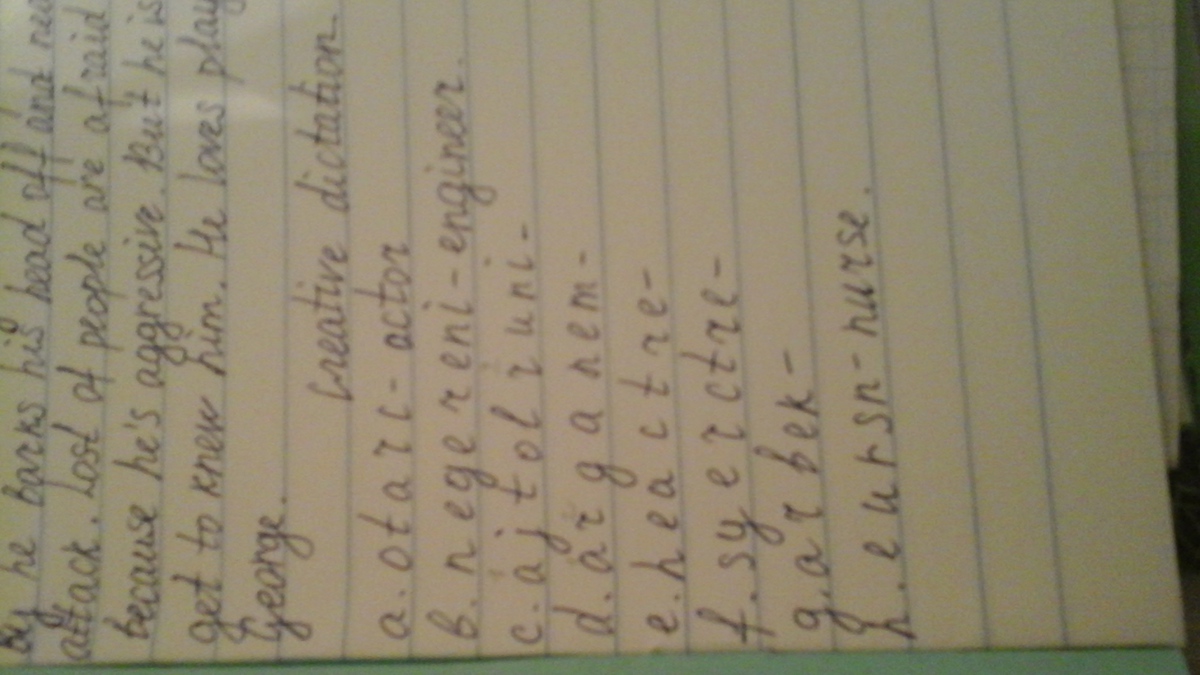 by he barks his head off and
attack. Lost of people are afraid
because he's aggressive. But he is
get to knew him. He loves play
George.
Creative dictation
a. otarc - actor
b. negereni - engineer.
c. ajtolruni -
d. arganem -
e. heactre -
f. syerctre -
g. arbek -
h. eursn - nurse.